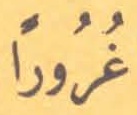 غُرُورًا